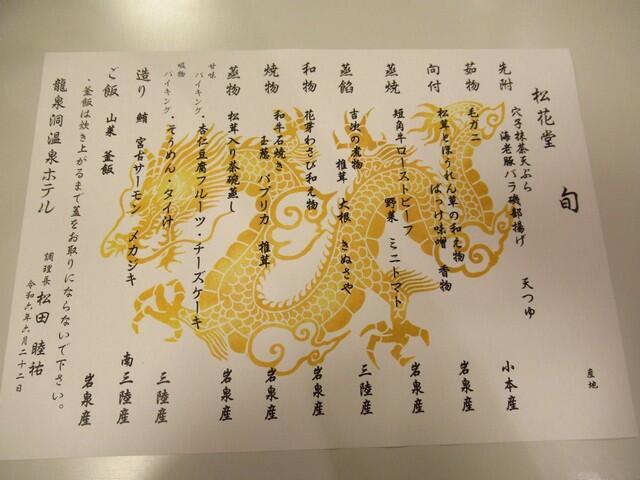 松花堂 旬
産地
先附 穴子抹茶天ぷら 天つゆ 小本産
海老豚バラ磯部揚げ
茹物 毛ガニ 岩泉産
向付 松茸とほうれん草の和え物 岩泉産
ばっけ味噌 香物
蒸焼 短角牛ローストビーフ 岩泉産
野菜 ミニトマト
蒸餡 吉次の煮物 三陸産
椎茸 大根 きぬさや
和物 花芽わさび和え物 岩泉産
焼物 和牛石焼き 岩泉産
玉葱 パプリカ 椎茸
蒸物 松茸入り茶碗蒸し 岩泉産
甘味 バイキング・杏仁豆腐フルーツ・チーズケーキ
吸物 バイキング・そうめん・タイ汁 三陸産
造り 鮪 宮古サーモン メカジキ 南三陸産
ご飯 山菜 釜飯 岩泉産
・釜飯は炊き上がるまで蓋をお取りにならないで下さい。
龍泉洞温泉ホテル 調理長 松田 睦祐
令和六年六月二十二日